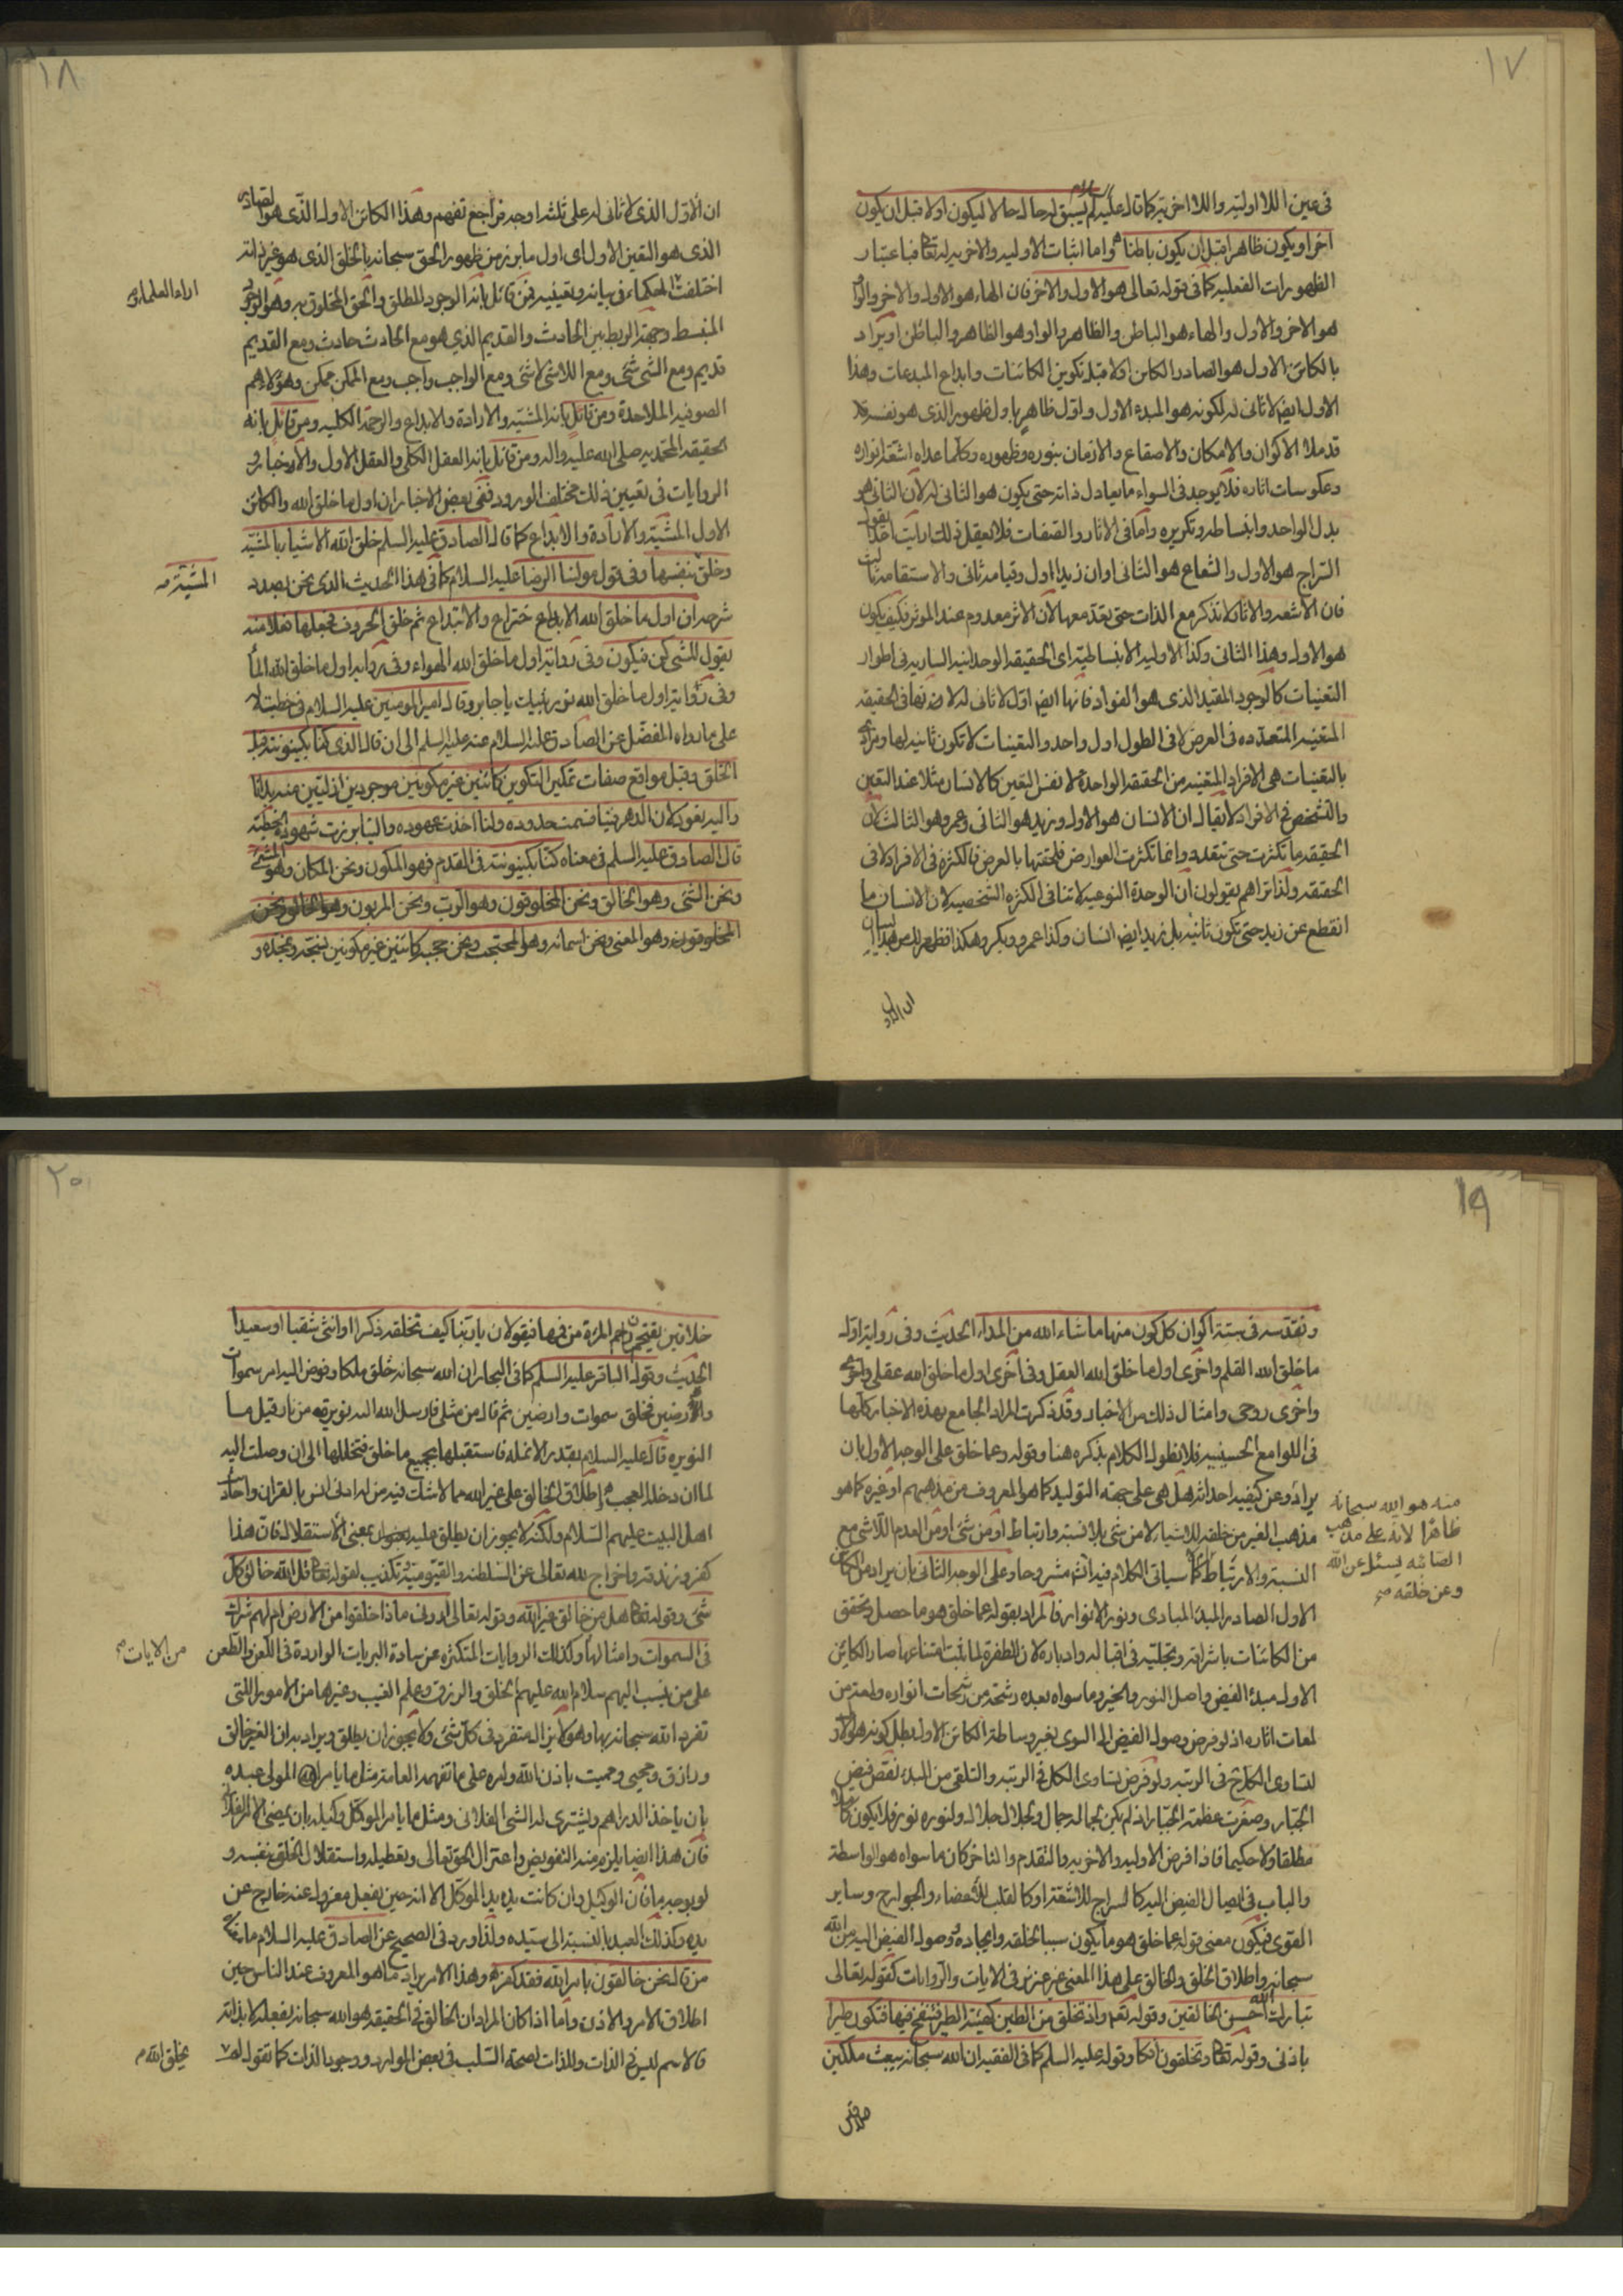 ١٧
فى عين اللا اولية واللا اخرية كما قال عليه السلام لم يسبق له حال حالا ليكون اولا قبل ان يكون
اخرا ويكون ظاهرا قبل ان يكون باطنا واما اثبات الاوليه والاخريه له تعالى فباعتبار
الظهورات الفعليه كما فى قوله تعالى هو الاول والاخر فان الهاء هو الاول والاخر والواو
هو الاخر والاول والهاء هو الباطن والظاهر والواو هو الظاهر والباطن او يراد
بالكائن الاول هو الصادر الكائن اولا قبل تكوين الكائنات وابداع المبدعات وهذا
الاول ايضا لا ثانى له لكونه هو المبدء الاول واول ظاهر باول ظهور الذى هو نفسه فلا
قد ملأ الاكوان والامكان والاصقاع والازمان بنوره وظهوره وكلما عداه اشعة انواره
وعكوسات اثاره فلا يوجد فى السواء ما يعادل ذاته حتى يكون هو الثانى له لان الثانى هو
بدل الواحد وانبساطه وتكريره واما فى الاثار والصفات فلا يعقل ذلك ارايت احدا يقول
السراج هو الاول والشعاع هو الثانى او ان زيدا اول وقيامه ثانى والاستقامة ثالث
فان الاشعه والاثار لا تذكر مع الذات حتى يعد معها لان الاثر معدوم عند الموثر فكيف يكون
هو الاول وهذا الثانى وكذا الاوليه الانبساطية اى الحقيقه الوحدانيه الساريه فى اطوار
التعينات كالوجود المقيد الذى هو الفواد فانها ايضا اول لا ثانى له لا فى الحقيقه
المتعينه المتعدده فى العرض لا فى الطول اول واحد والتعينات لا تكون ثانيه لها ومراده
بالتعينات هى الافراد المتعينه من الحقيقه الواحدة لا نفس التعين كالانسان مثلا عند التعين
والتشخص فى الافراد لا يقال ان الانسان هو الاول وزيد هو الثانى وعمرو هو الثالث لان
الحقيقه ما تكثرت حتى تتعدد وانما تكثرت العوارض فلحقتها بالعرض فالكثره فى الافراد لا فى
الحقيقه ولذا تراهم يقولون ان الوحدة النوعيه لا تنافى الكثره الشخصيه لان الانسان ما
انقطع عن زيد حتى تكون ثانيه بل زيد ايضا انسان وكذا عمرو وبكر وهكذا فظهر لك من هذا البيان
ان الاول
١٨
ان الاول الذى لا ثانى له على ثلثه اوجه فراجع تفهم وهذا الكائن الاول الذى هو الصادر
الذى هو التعين الاول اى اول ما برز من ظهور الحق سبحانه بالخلق الذى هو غير ذاته
اختلفت الحكماء فى بيانه وتعيينه فمن قائل بانه الوجود المطلق والحق المخلوق به وهو الوجود
المنبسط وجهة الربط بين الحادث والقديم الذي هو مع الحادث حادث ومع القديم
قديم ومع الشى شى ومع اللاشى لا شى ومع الواجب واجب ومع الممكن ممكن وهؤلاء هم
الصوفيه الملاحدة ومن قائل بانه المشيه والارادة والابداع والرحمة الكليه ومن قائل بانه
الحقيقه المحمديه صلى الله عليه واله ومن قائل بانه العقل الكلى والعقل الاول والاخبار و
الروايات فى تعيين ذلك مختلف الورود ففى بعض الاخبار ان اول ما خلق الله والكائن
الاول المشية والارادة والابداع كما قال الصادق عليه السلم خلق الله الاشياء بالمشية
وخلق بنفسها وفى قول مولنا الرضا عليه السلام كما فى هذا الحديث الذى نحن بصدد
شرحه ان اول ما خلق الله الابداع ختراع والابتداع ثم خلق الحروف فجعلها فعلا منه
يقول للشى كن فيكون وفى رواية اول ما خلق الله الهواء وفى رواية اول ما خلق الله الماء
وفى رواية اول ما خلق الله نور نبيك يا جابر وقال امير المومنين عليه السلام فى خطبته
على ما رواه المفضل عن الصادق عليه السلام عنه عليه السلم الى ان قال الذى كنا بكينونته قبل
الخلق وقبل مواقع صفات تمكين التكوين كائنين غير مكونين موجودين ازليين منه بدانا
واليه نعود لان الدهر فينا قسمت حدوده ولنا اخذت عهوده والينا برزت شهوده الخطبة
قال الصادق عليه السلم فى معناه كنا بكينونته فى القدم فهو المكون ونحن المكان وهو المشئ
ونحن الشى وهو الخالق ونحن المخلوقون وهو الرب ونحن المربوبون وهو الخالق ونحن
المخلوقون وهو المعنى ونحن اسمائه وهو المحتجب ونحن حجبه كائنين غير مكونين نسبحه ونمجده و
اراء العلماء فى
المشيته
١٩
ونقدسه فى ستة اكوان كل كون منها ما شاء الله من المداء الحديث وفى رواية اول
ما خلق الله القلم واخرى اول ما خلق الله العقل وفى اخرى اول ما خلق الله عقلى
واخرى روحى وامثال ذلك من الاخبار وقد ذكرت المراد الجامع بهذه الاخبار كلها
فى اللوامع الحسينيه فلا نطول الكلام بذكره هنا وقوله وعما خلق على الوجه الاول بان
يراد وعن كيفيه احداثه هل هى على جهة التوليد كما هو المعروف من مذهبهم او غيره كما هو
مذهب الغير من خلقه للاشياء لا من شى بلا نسبة وارتباط او من شى او من العدم اللاشى مع
النسبة والارتباط كما سياتى الكلام فيه انش مشروحا وعلى الوجه الثانى بان يراد من الكائن
الاول الصادر المبدء المبادى ونور الانوار فالمراد بقوله عما خلق هو ما حصل وتحقق
من الكائنات باشراقه وتجليه فى اقباله وادباره لان الطفرة لما ثبت امتناعها صار الكائن
الاول مبدء الفيض واصل النور والخير وما سواه بعده رشحة من رشحات انواره ولمعة من
لمعات اثاره اذ لو فرض وصول الفيض الى السوى بغير وساطة الكائن الاول بطل كونه هو الاول
لتساوى الكل فى الرتبه ولو فرض تساوى الكل فى الرتبه والتلقى من المبدء نقص فيض
الجبار وصغرت عظمة الجبار اذ لم يكن لجماله جمال ولجلاله جلال ولنوره نور فلا يكون كاملا
مطلقا ولا حكيما فاذا فرض الاوليه والاخريه والتقدم والتاخر كان ما سواه هو الواسطة
والباب فى ايصال الفيض اليه كالسراج للاشعة او كالقلب للاعضاء والجوارح وساير
القوى فيكون معنى قوله عما خلق هو ما يكون سببا لخلقه وايجاده ووصول الفيض اليه من الله
سبحانه واطلاق الخلق والخالق على هذا المعنى غير عزيز فى الايات والروايات كقوله تعالى
تبارك الله احسن الخالقين وقوله تعالى واذ تخلق من الطين كهيئة الطير فتنفخ فيها فتكون طيرا
باذنى وقوله تعالى وتخلقون افكا وقوله عليه السلم كما فى الفقيه ان الله سبحانه يبعث ملكين
خلاقين
منه هو الله سبحانه
ظاهرا لانه على مذهب
الصائبه يسئل عن الله
وعن خلقه صح
٢٠
خلاقين يقتحمان رحم المرئة من فيها فيقولان يا ربنا كيف تخلقه ذكرا او انثى شقيا او سعيدا
الحديث وقول الباقر عليه السلم كما فى البحار ان الله سبحانه خلق ملكا وفوض اليه امر سموات
والارضين فخلق سموات وارضين ثم قال من مثلى فارسل الله اليه نويره من نار قيل ما
النويره قال عليه السلام بقدر الانمله فاستقبلها بجميع ما خلق فتخللها الى ان وصلت اليه
لما ان دخله العجب واطلاق الخالق على غير الله مما لا شك فيه من له ادنى انس بالقران واحاديث
اهل البيت عليهم السلام ولكنه لا يجوز ان يطلق عليه بمعنى الاستقلال فان هذا
كفر وزندقه واخراج لله تعالى عن السلطنه والقيوميه وتكذيب لقوله تعالى قل الله خالق كل
شى وقوله تعالى هل من خالق غير الله وقوله تعالى ارونى ماذا خلقوا من الارض ام لهم شرك
فى السموات وامثالها وكذلك الروايات المتكثره عن سادة البريات الواردة فى اللعن والطعن
على من نسب اليهم سلام الله عليهم الخلق والرزق وعلم الغيب وغيرها من الامور اللتى
تفرد الله سبحانه بها وهو لا يزال متفرد فى كل شى ولا يجوز ان يطلق ويراد به ان الغير خالق
ورازق ومحيى ومميت باذن الله وامره على ما تفهمه العامة مثل ما يامر المولى عبده
بان ياخذ الدراهم ويشترى له الشى الفلانى ومثل ما يامر الموكل وكيله بان يمضى الامر الفلانى
فان هذا ايضا يلزم منه التفويض واعتزال الحق تعالى وتعطيله واستقلال الخلق بنفسه و
لو بوجه ما فان الوكيل وان كانت يده يد الموكل الا انه حين يفعل معزول عنه خارج عن
يده وكذلك العبد بالنسبة الى سيده ولذا ورد فى الصحيح عن الصادق عليه السلام ما معناه
من قال نحن خالقون بامر الله فقد كفر وهذا الامر يراد ما هو المعروف عند الناس حين
اطلاق الامر والاذن واما اذا كان المراد ان الخالق فى الحقيقه هو الله سبحانه بفعله لا بذاته
فالاسم ليس فى الذات وللذات لصحة السلب فى بعض الموارد ووجود الذات كما تقول لم
من الايات
يخلق الله